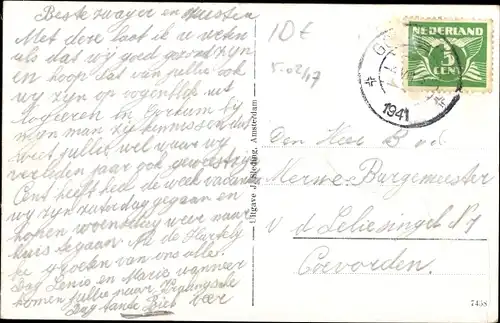 Beste zwager en zuster
Met deze laat ik u weten
als dat wij goed gezond zijn
en hoop dat van jullie ook
wij zijn op ogenblik uit
logieren in Gorkum bij
man zij kennissen dat
weet jullie wel waar wij
verleden jaar ook geweest zijn
Cent heeft heel de week vacantie
wij zijn zaturdag gegaan en
hopen woensdag weer naar
huis te gaan. Nu de Hartelij
ke groeten van ons alle.
Dag Lenio en Marie wanneer
komen jullie naar
Dag tante Bies
Uitgave J. Sleding, Amsterdam
10€
5.02/17
NEDERLAND
5
CENT
1941
Den Heer B v d
Merwe-Burgemeester
v d Leliesingel 17
Coevorden.
7458